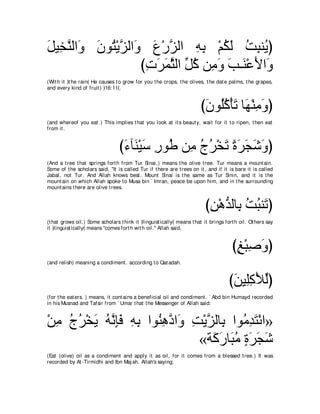 (يُنبِتُ لَكُمْ بِهِ الزَّرْعَ وَالزَّيْتُونَ وَالنَّخِيلَ
وَالأَعْنَـبَ وَمِن كُلِّ الثَّمَرَتِ)
(With it (the rain( He causes to grow for you the crops, the olives, the date palms, the grapes,
and every kind of fruit) )16:11(.
(وَمِنْهَا تَأْكُلُونَ)
(and whereof you eat.) This implies that you look at its beauty, wait for it to ripen, then eat
from it.
(وَشَجَرَةً تَخْرُجُ مِن طُورِ سَيْنَآءَ)
(And a tree that springs forth from Tur Sinai,) means the olive tree. Tur means a mountain.
Some of the scholars said, "It is called Tur if there are trees on it, and if it is bare it is called
Jabal, not Tur. And Allah knows best. Mount Sinai is the same as Tur Sinin, and it is the
mountain on which Allah spoke to Musa bin `Imran, peace be upon him, and in the surrounding
mountains there are olive trees.
(تَنبُتُ بِالدُّهْنِ)
(that grows oil,) Some scholars think it linguistically) means that it brings forth oil. Others say
it )linguistically) means "comes forth with oil." Allah said,
(وَصِبْغٍ)
(and relish) meaning a condiment. according to Qatadah.
(لِّلأَكِلِينَ)
(for the eaters. ) means, it contains a beneficial oil and condiment. `Abd bin Humayd recorded
in his Musnad and Tafsir from `Umar that the Messenger of Allah said:
«ائْتَدِمُوا بِالزَّيْتِ وَادَّهِنُوا بِهِ فَإِنَّهُ يَخْرُجُ مِنْ
شَجَرَةٍ مُبَارَكَة»
(Eat (olive) oil as a condiment and apply it as oil, for it comes from a blessed tree.) It was
recorded by At-Tirmidhi and Ibn Majah. Allah's saying;